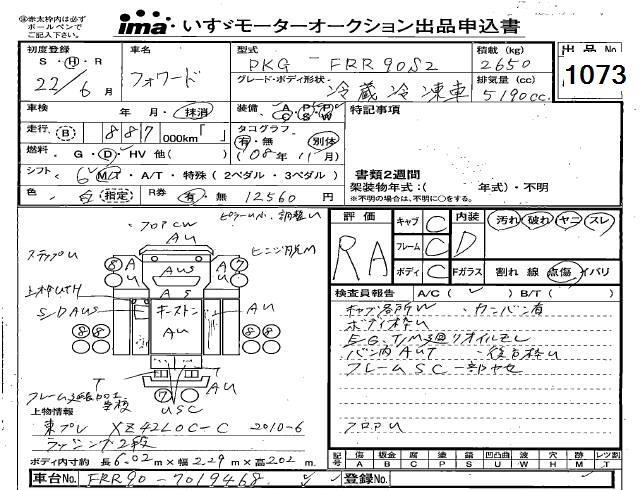 ※赤太枠内は必ず
ボールペンで
ご記入下さい。
ima いすゞモーターオークション出品申込書
初度登録 S・H・R 22/6月
車名 フォワード
型式 PKG-FRR90S2
積載 (kg) 2650
出品No 1073
グレード・ボディ形状 冷蔵冷凍車
排気量 (cc) 5190cc
車検 年 月・抹消
装備 A P C S P W
特記事項
走行 (B) 887 000km「 」
タコグラフ 有・無 別体
燃料 G・D・HV 他( )
(08年11月)
シフト 6 M/T・A/T・特殊 (2ペダル・3ペダル)
書類2週間
架装物年式:( 年式)・不明
※不明の場合は、不明に○をする。
色 白 指定 R券 有・無 12560円
フロアCW
ステップU
AU
AUS
AS
S/DAUS
キーストン
AU
AU
T T
AU
USC
評価 RA
キャブ C
フレーム C
ボディ C
内装 D 汚れ 破れ ヤニ スレ
Fガラス 割れ 線 点傷 イバリ
検査員報告 A/C( ) B/T( )
キャブ各所W
カンバン有
ボディ枠U
E/G、T/M廻リオイルモレ
バン内AUT
フレームSC一部ヤセ
フロアU
上物情報
東プレ XZ42LOC-C 2010-6
ラッシング2段
ボディ内寸約 長6.02m×幅2.29m×高2.02m
記号 傷A 板金B 腐C 塗P 錆S 凹凸曲U 波W 穴H 跡M レツ割T
車台No. FRR90-7019468
登録No.